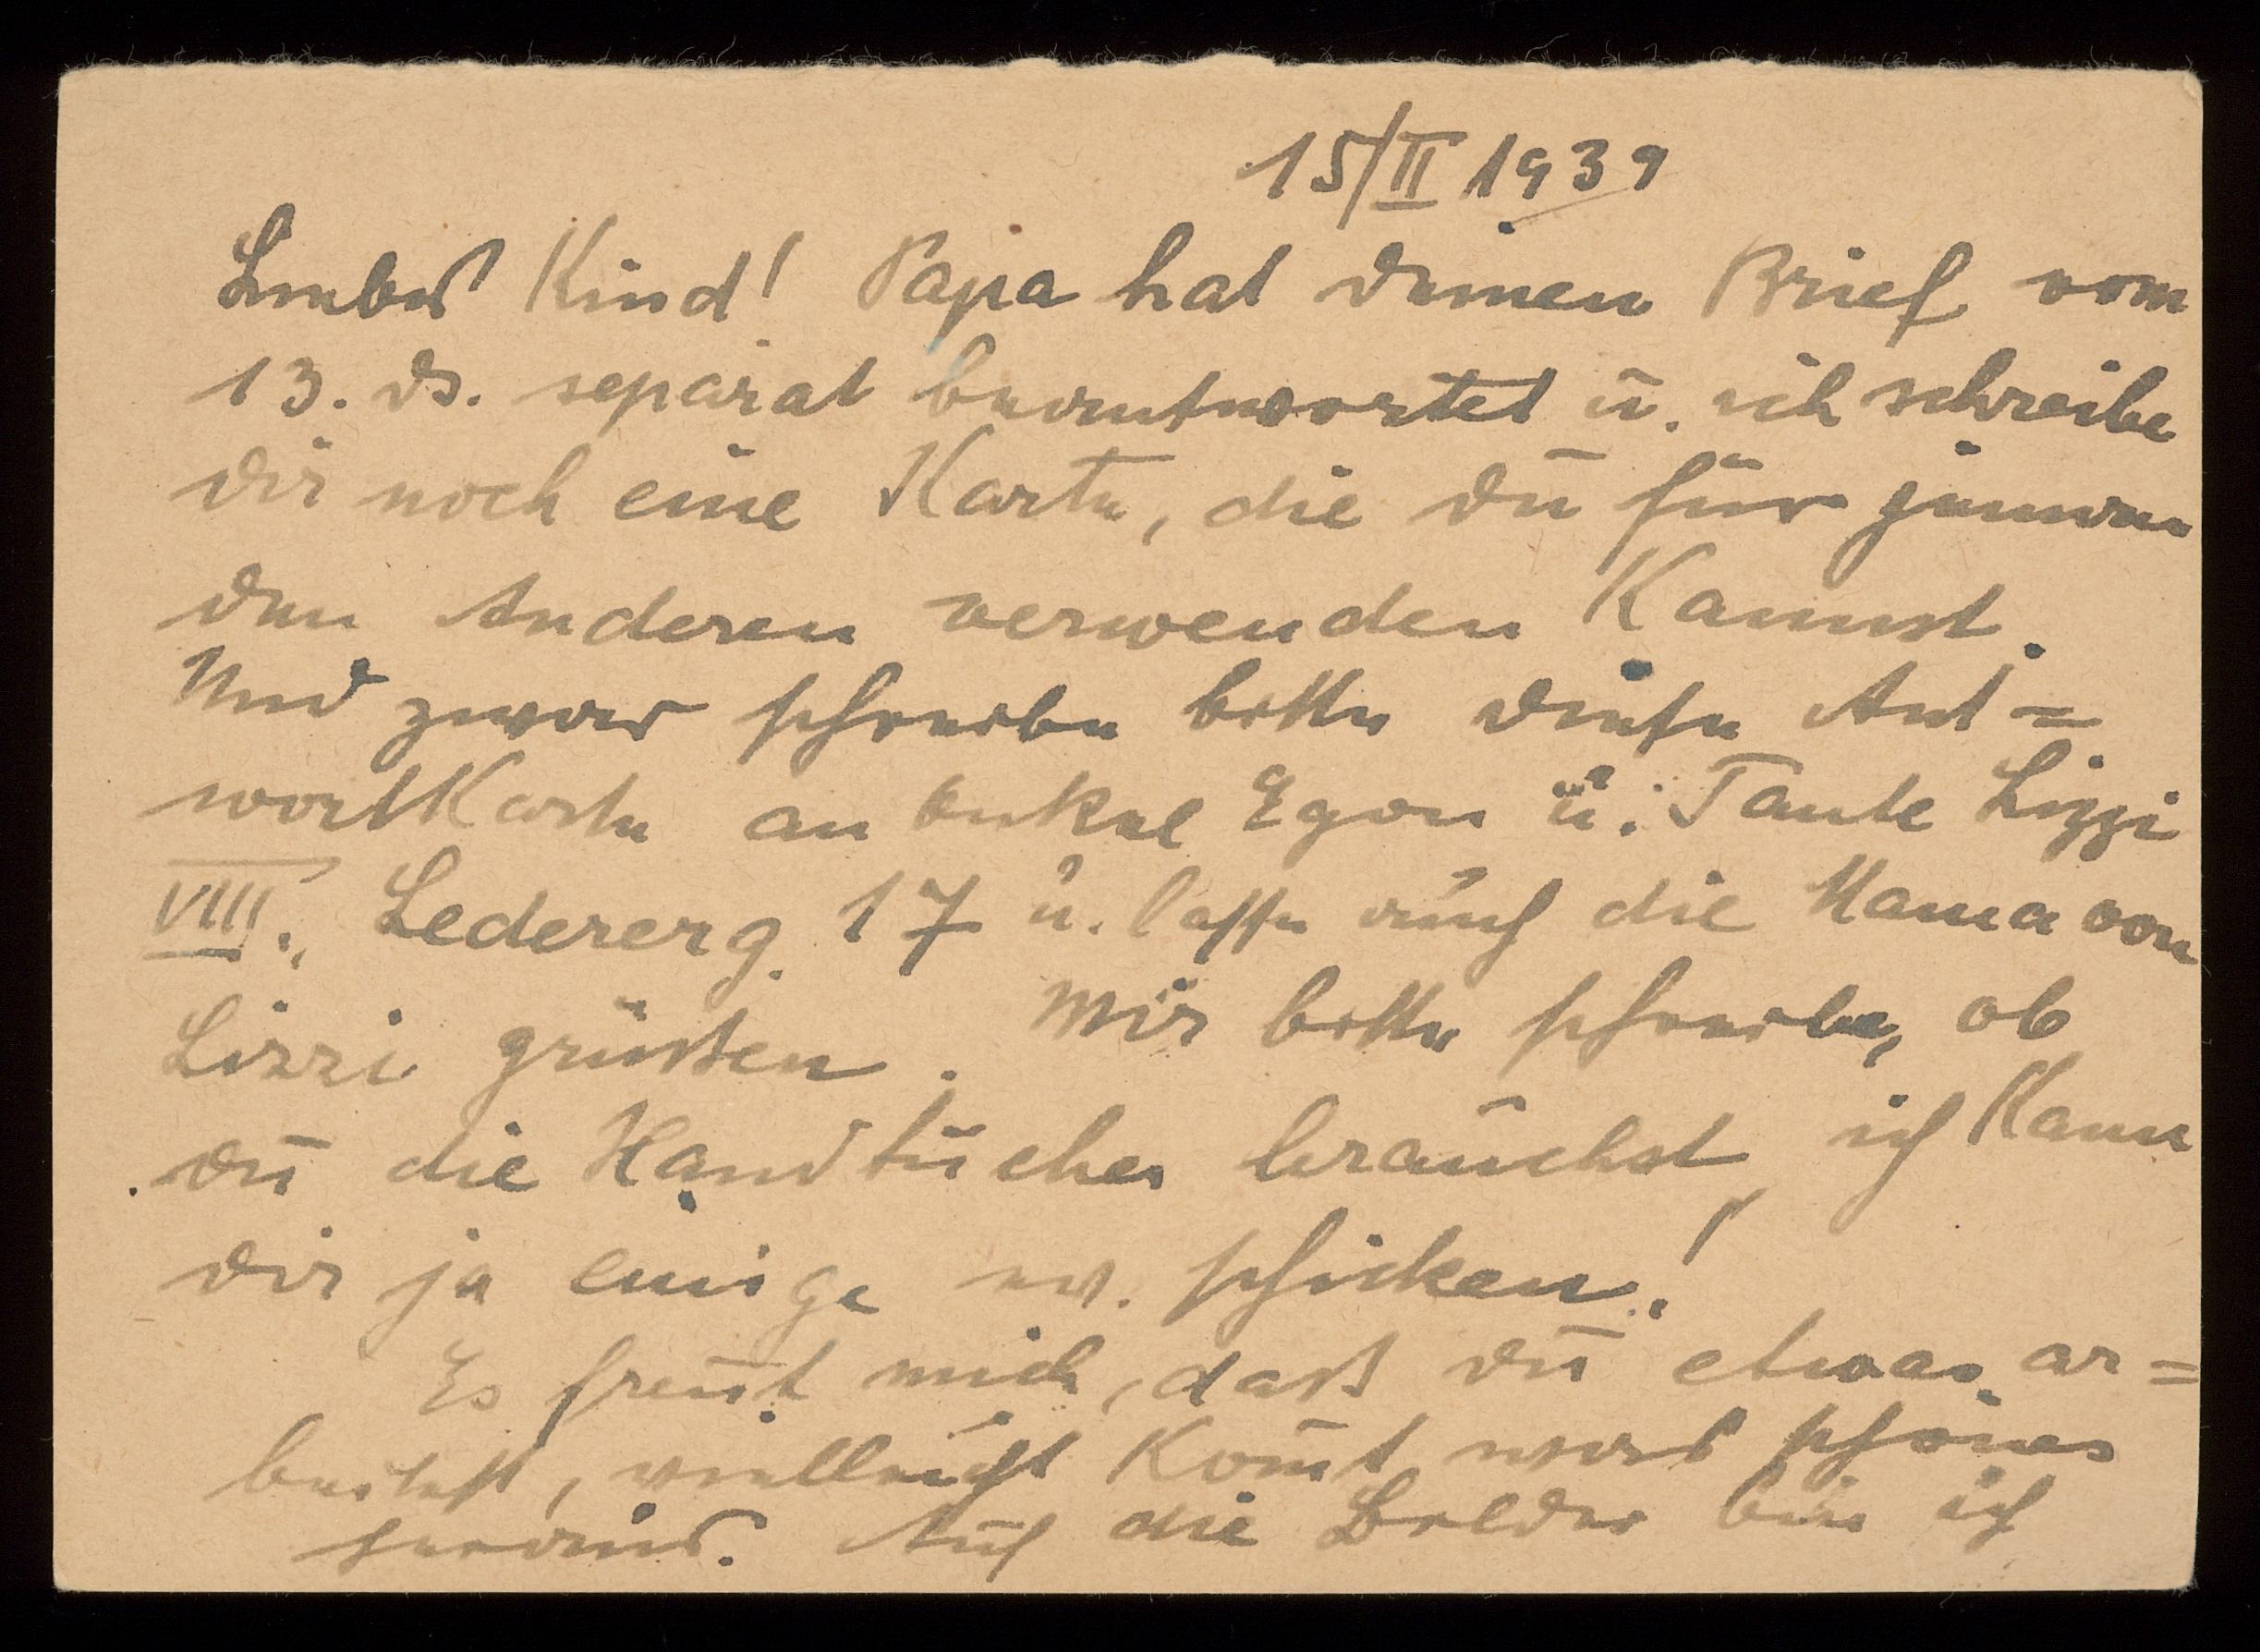 15/II 1939
Liebes Kind! Papa hat deinen Brief vom
13. ds. separat beantwortet u. ich schreibe
dir noch eine Karte, die du für jeman
den Anderen verwenden kannst.
Und zwar schreibe bitte diese Ant=
wortkarte an Onkel Egon u. Tante Lizzi
VIII., Ledererg. 17 u. lasse auch die Mama von
Lizzi grüßen. Mir bitte schreibe, ob
du die Handtücher brauchst, ich kann
dir ja einige ev. schicken!
Es freut mich, daß du etwas ar=
beitest, vielleicht kom̄t was schönes
heraus. Auf die Bilder bin ich